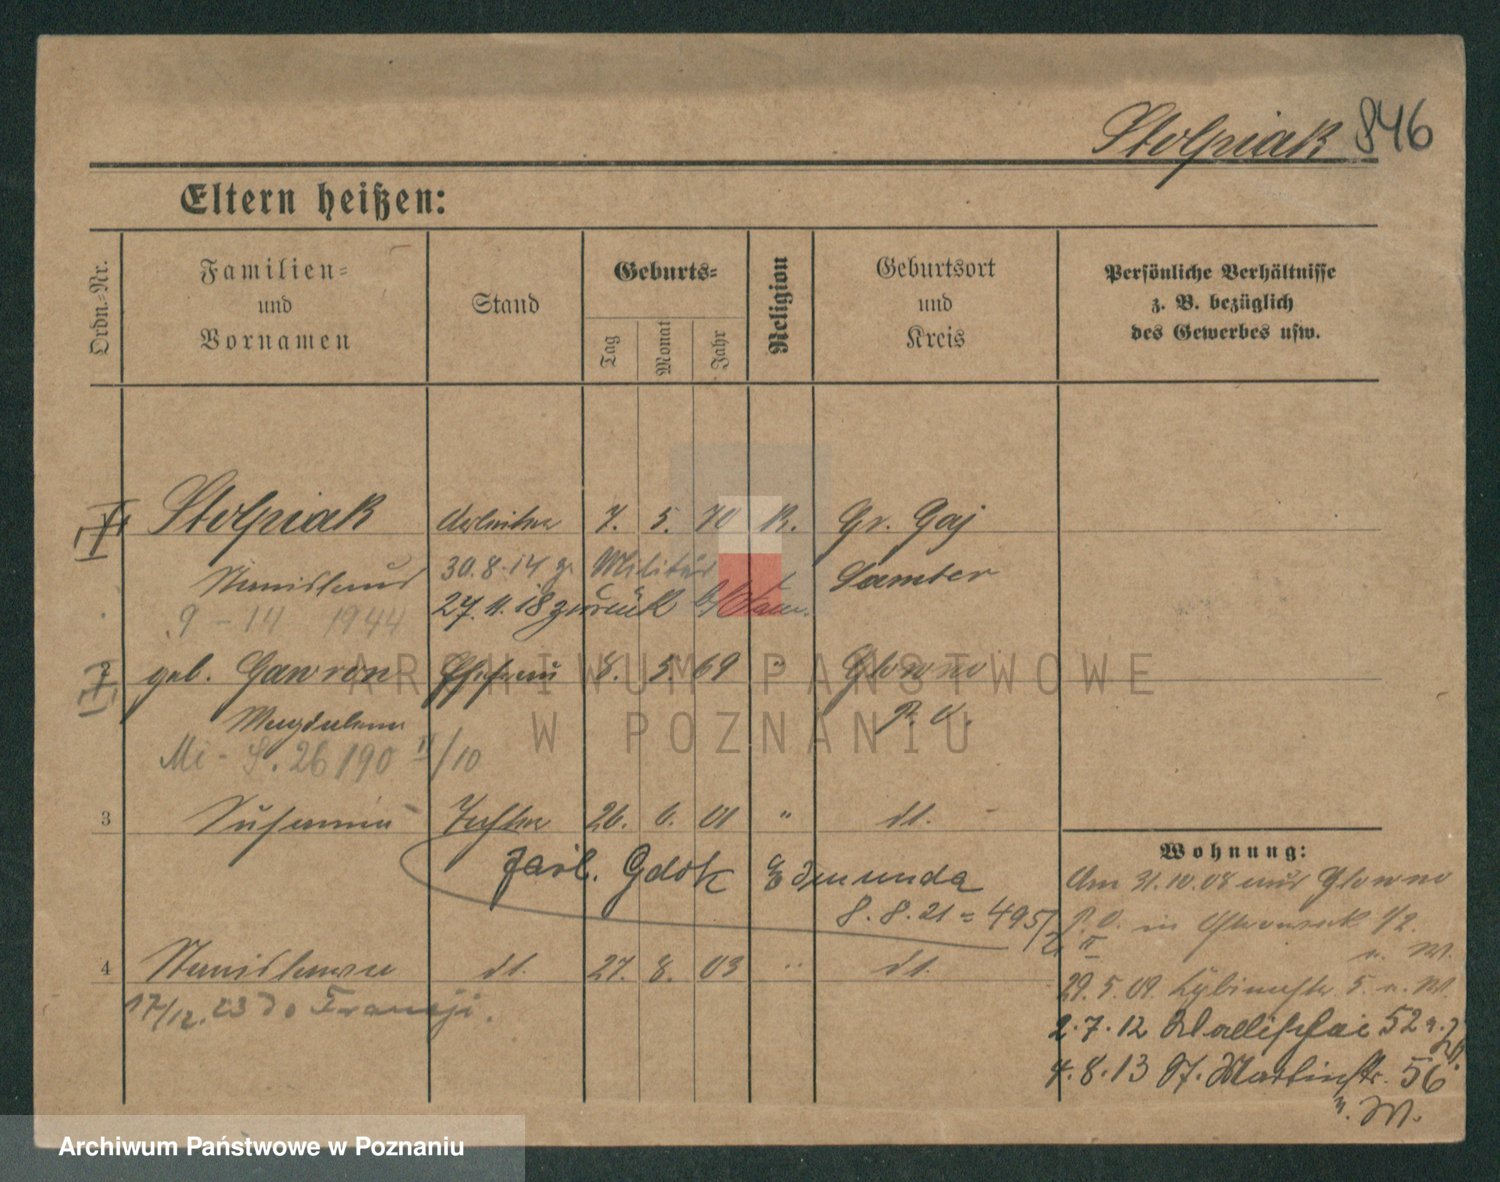 Stolpiak 846
Eltern heißen:
Ordn.-Nr.
Familien-
und
Vornamen
Stand
Geburts-
Tag
Monat
Jahr
Religion
Geburtsort
und
Kreis
Persönliche Verhältnisse
z. B. bezüglich
des Gewerbes usw.
Stolpiak Arbeiter 7. 5. 70 K. Gr. Gaj
Stanislaus 30.8.14 z. Militär Samter
27.11.18 zurück
9 - 14 1944
2 geb. Gawron Ehefrau 8. 5. 69 " Glowno
Magdalena P. O.
Mi - S. 26190 II/10
3 Susanna Tochter 26. 6. 01 " dt.
Gdok Edmunda
8.8.21 = 495/
II
4 Stanislawa dt. 27. 8. 03 " dt.
17/12.23 do Francji.
Wohnung:
Am 31.10.08 aus Glowno
P.O. in
29.5.09. 5. b. W.
2.7.12 Wallischei 52
4.8.13 St. Martinstr. 56
ARCHIWUM PAŃSTWOWE
W POZNANIU
Archiwum Państwowe w Poznaniu